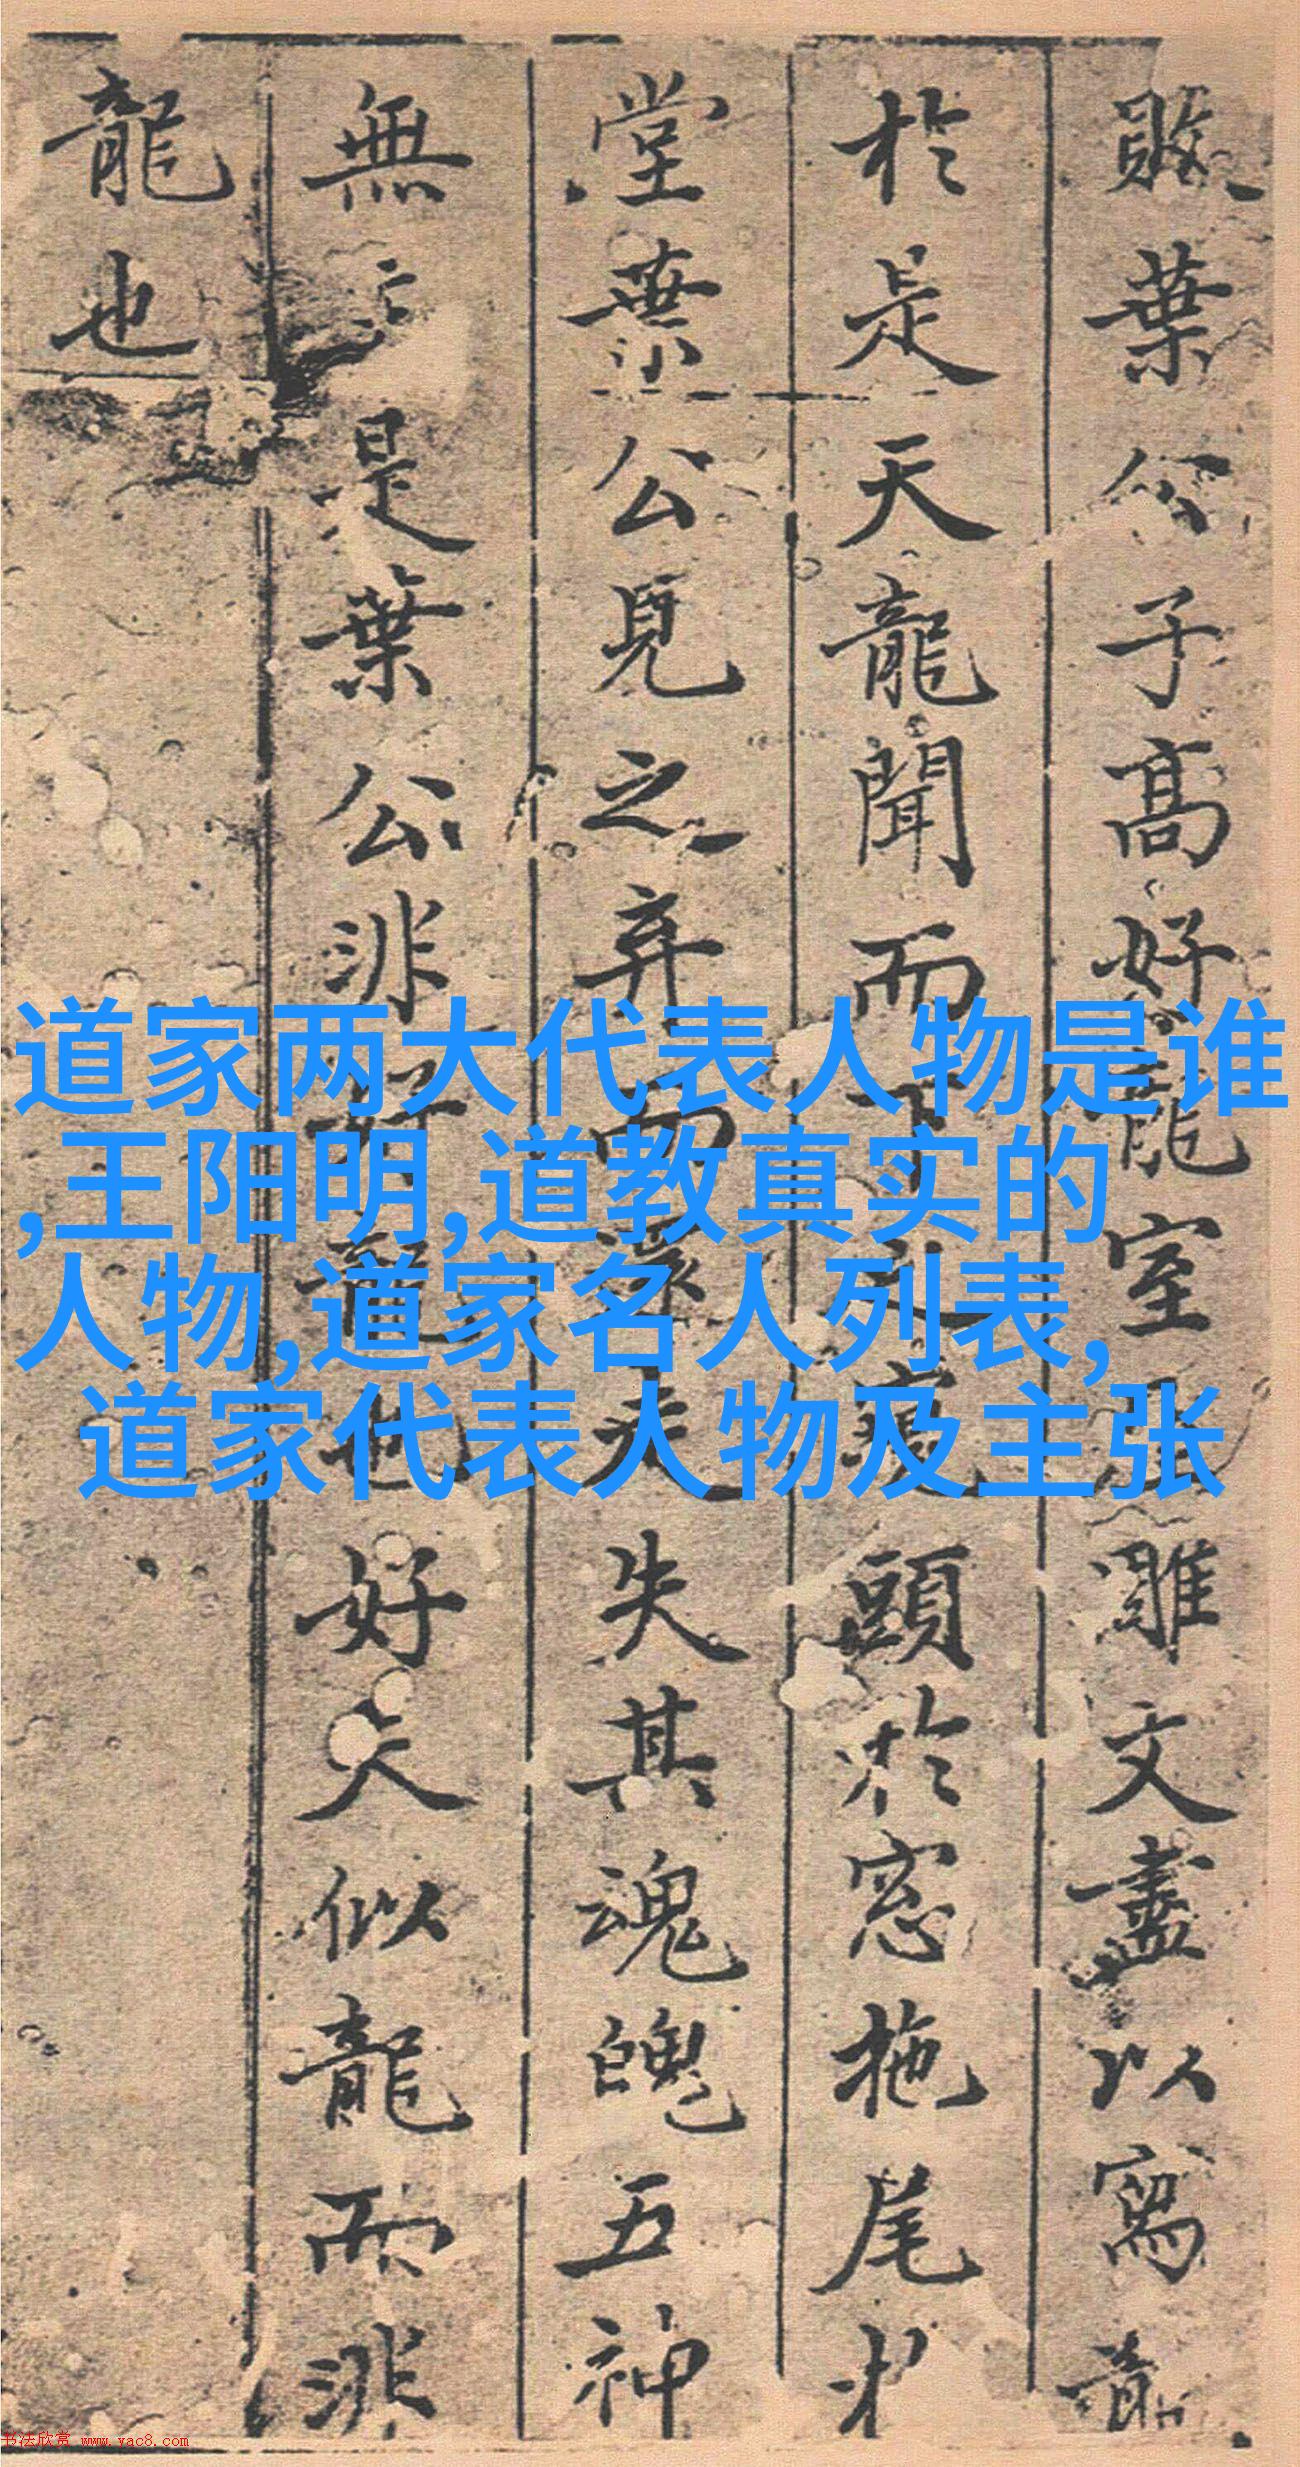 敗葉公子高好龍室屋雕文盡以寫龍
於是天龍聞而下之窺頭於窓拖尾於
堂葉公見之弃而還走失其魂魄五神
無主是葉公非好龍也好夫似龍而非
龍也
道家两大代表人物是谁
,王阳明,道教真实的
人物,道家名人列表,
道家代表人物及主张
书法欣赏 www.yac8.com